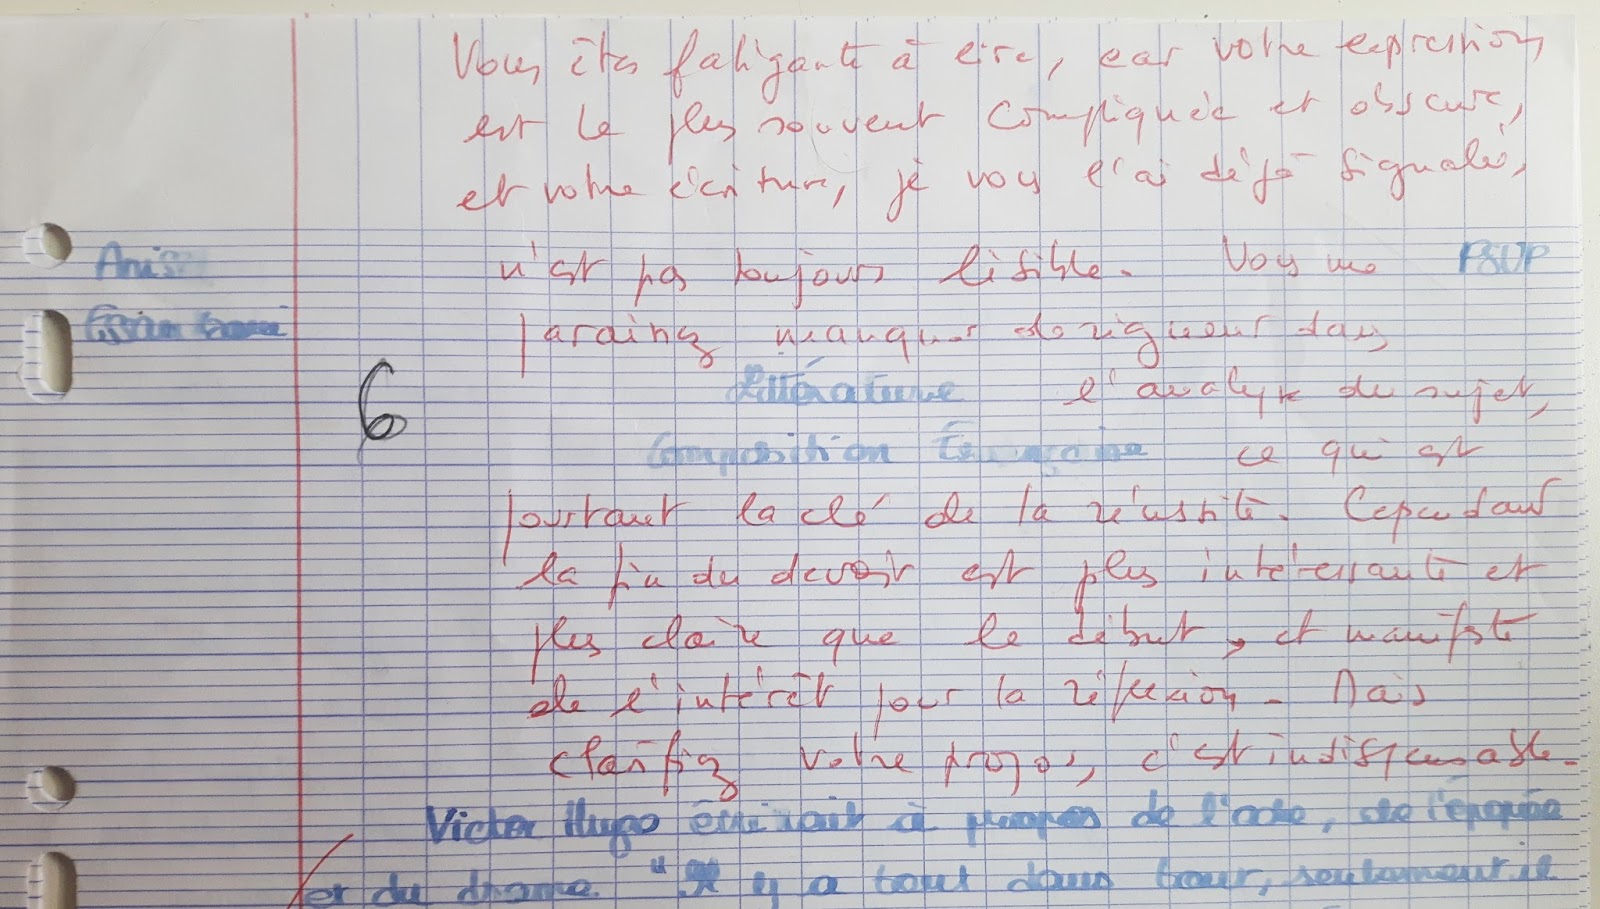 Vous êtes fatigante à lire, car votre expression
est le plus souvent compliquée et obscure,
et votre écriture, je vous l'ai déjà signalé,
Anis
n'est pas toujours lisible. Vous me PSUP
paraissez manquer de rigueur dans
Littérature l'analyse du sujet,
6
Composition ce qui est
pourtant la clé de la réussite. Cependant
la fin du devoir est plus intéressante et
plus claire que le début, et manifeste
de l'intérêt pour la réflexion. Mais
clarifiez votre propos, c'est indispensable.
Victor Hugo écrivait à propos de l'ode, de l'épopée
et du drame. "Il y a tout dans tout, seulement il